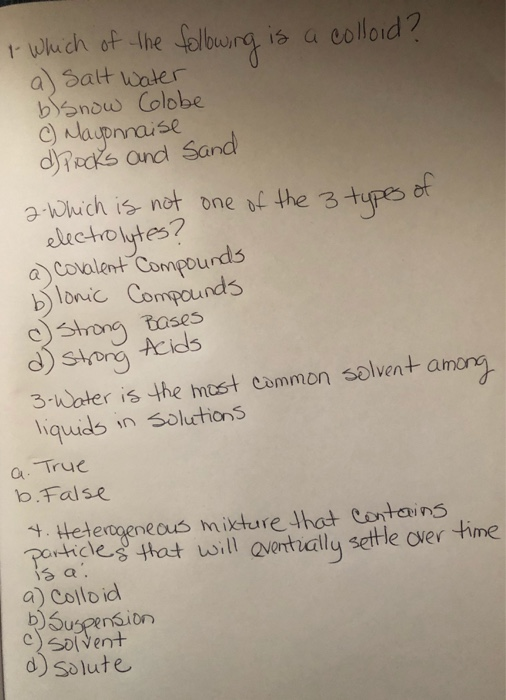 1- Which of the following is a colloid?
a) Salt Water
b) Snow Globe
c) Mayonnaise
d) Rocks and Sand
2- Which is not one of the 3 types of
electrolytes?
a) Covalent Compounds
b) Ionic Compounds
c) Strong Bases
d) Strong Acids
3- Water is the most common solvent among
liquids in solutions
a. True
b. False
4. Heterogeneous mixture that contains
particles that will eventually settle over time
is a:
a) Colloid
b) Suspension
c) Solvent
d) Solute